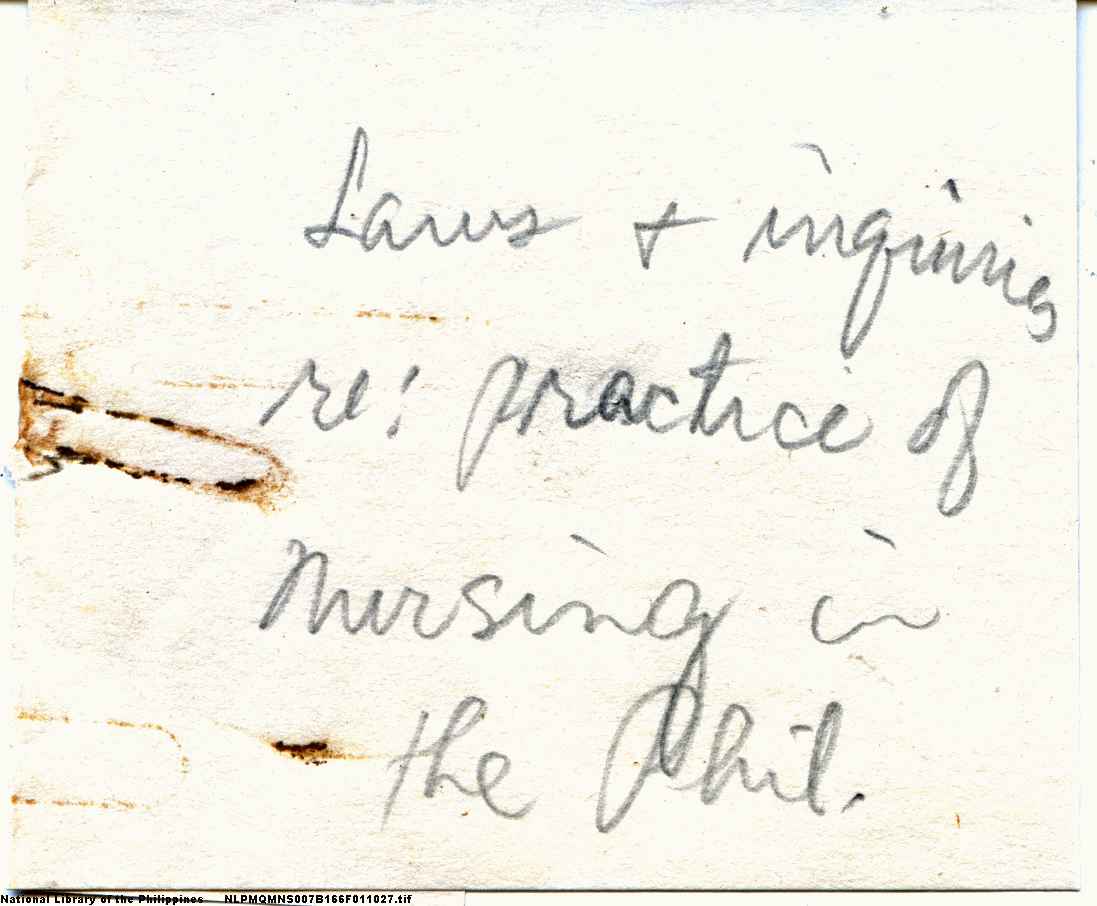 Laws + inquiries
re: practice of
Nursing in
the Phil.
National Library of the Philippines NLPMQMNS007B166F011027.tif